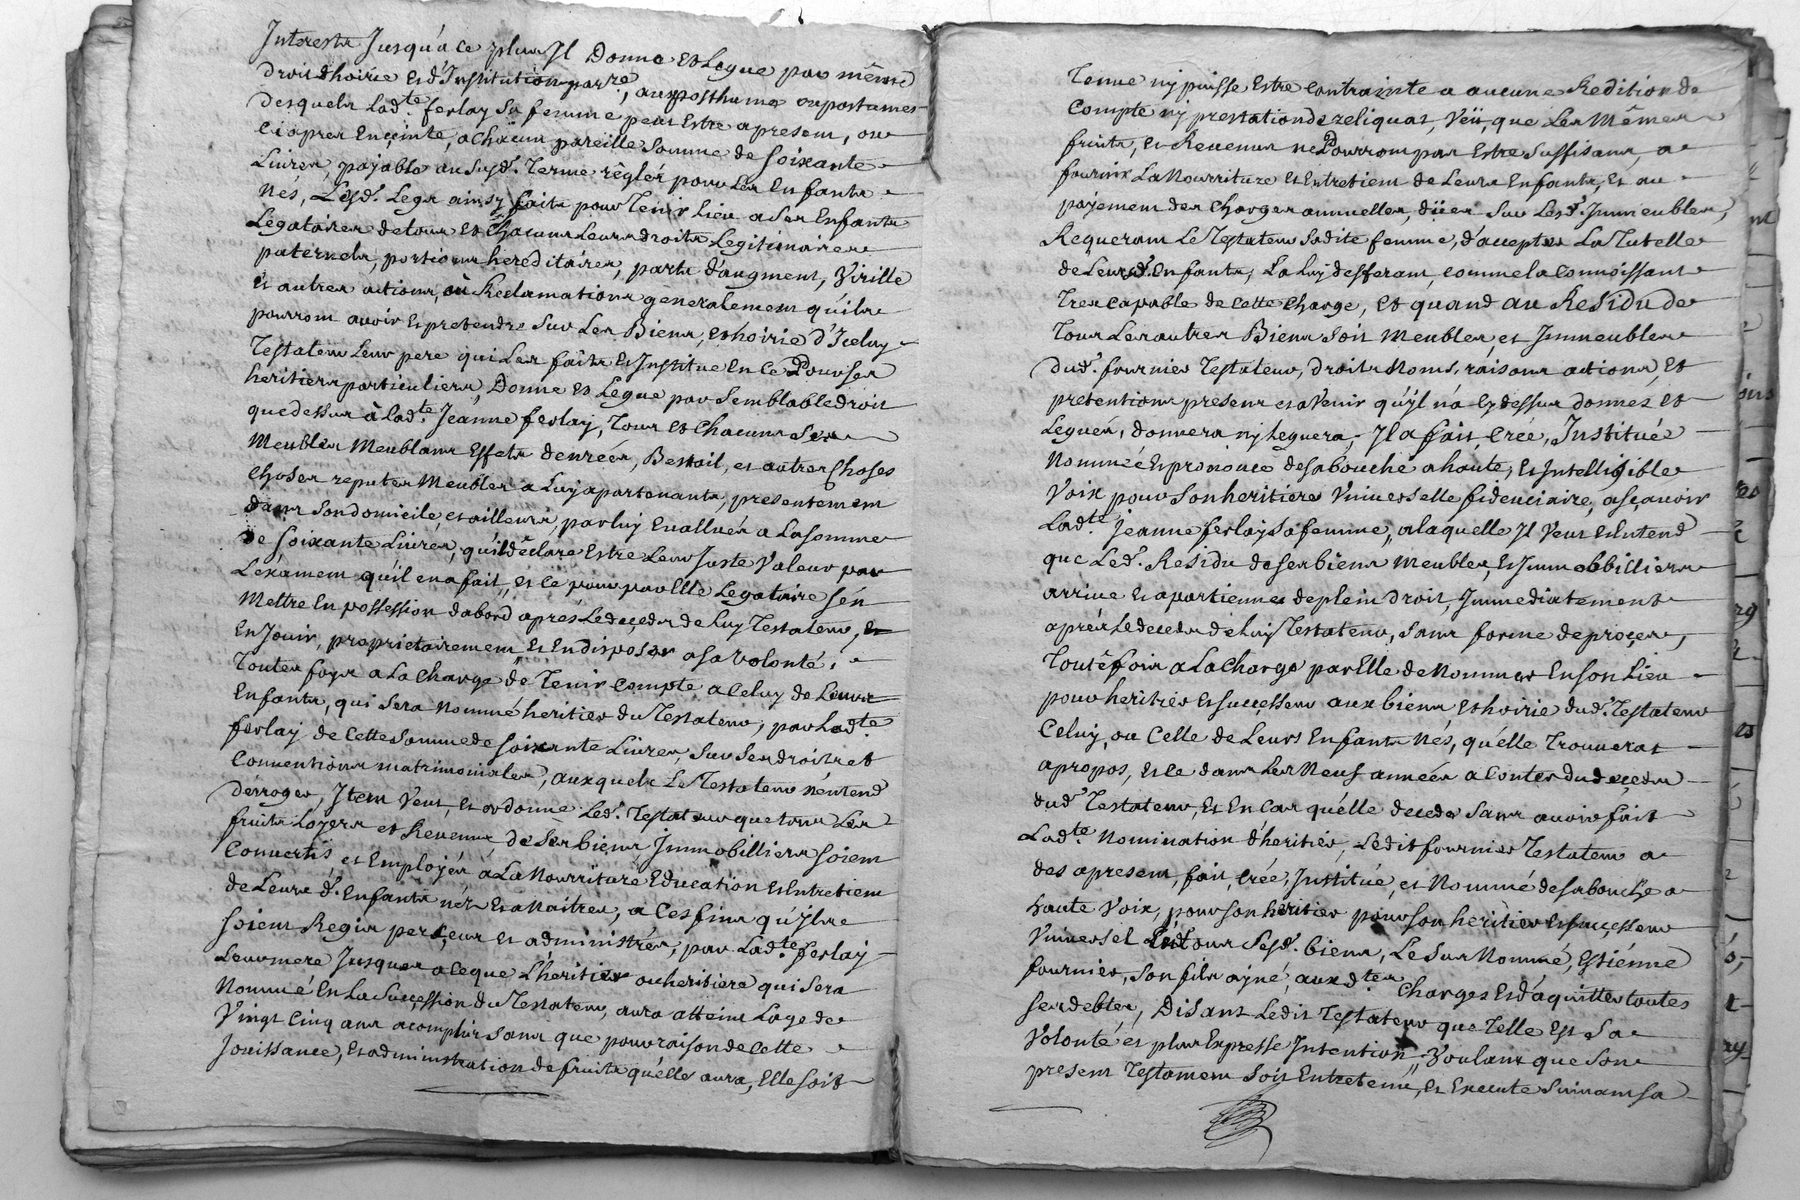 Interests Jusqu'a ce plus Il Donne et Legue par même
droit d'hoirie et d'Institution par.re, aux posthume ou postumes
desquels Lad.te ferlay sa femme peut Estre apresent, ou
Ciapres Enceinte, a Chacun pareille Somme de soixante
Livres, payable au susd. Terme réglés pour Les Enfants
Nés, Lesd. Legs ainsy faits pour Tenir Lieu a Ses Enfants
Légataires de tous et Chacuns Leurs droits Legitimaires
paternels, portions hereditaires, parts d'augment, Virille
et autres actions, où Reclamations generalement qu'ils
pourront avoir et pretendre Sur Les Biens, et hoirie d'Iceluy
Testateur Leur pere qui Les faits et Institue En Ce Pour Ses
heritiers particuliers, Donne et Legue par Semblable droit
que dessus à Lad.te Jeanne ferlay, Tous et Chacuns Ses
Meubles Meublans Effets denrées, Bestail, et autres Choses
Choses reputes Meubles a Luy apartenants, presentement
dans Son domicile, et ailleurs, par luy Evallués a La somme
de soixante Livres, qu'il déclare Estre Leur Juste Valeur par
L'éxamem qu'il en a fait, et ce pour par Elle Legataire s'én
Mettre En possession d'abord aprés Le deçeds de Luy Testateur, et
En Jouir, proprietairement, et En disposer a sa volonté,
Toutes foys a La Charge de Tenir Compte a Celuy de Leurs
Enfants, qui sera Nommé heritier du Testateur, par Lad.te
ferlay de Cette Somme de soixante Livres, Sur Ses droits et
Conventions matrimoniales, auxquels Le Testateur n'éntend
dérroger, Item Veut, et ordonne Led. Testateur que tous Les
fruits Loyers et Revenus de Ses biens Immobilliers soient
Convertis et Employés á La Nourriture Education et Entretient
de Leurs d. Enfants nés et a Naitre, a Ces fins qu'Ils
soient Regis perçeus et administrés, par Lad.te ferlay
Leur mere Jusques a Ce que L'heritier ou heritiere qui Sera
Nommé En La Suçession du Testateur, aura atteint L'age de
Vingt Cinq ans acomplis sans que pour raison de Cette
Jouissance, Et administration de fruits qu'elle aura, Elle soit
Tenue ny puisse Estre Contrainte a aucune Redition de
Compte ny prestation de reliquat, Veü, que Les Mêmes
fruits, et Revenus ne Pourront pas Estre Suffisans, a
fournir La Nourriture et Entretient de Leurs Enfants, et au
payement des Charges annuelles, düées Sur Lesd. Immeubles,
Requerant Le Testateur Sadite femme, d'accepter La Tutelle
de Leursd. Enfants, La Luy desferant, comme la Connoissant
Tres Capable de Cette Charge, et quand au Residu de
Tous Les autres Biens Soit Meubles, et Immeubles
dud. fournier Testateur, droits Noms, raisons actions, et
pretentions presens et a Venir qu'Il n'á Cy dessus donnés et
Legués, donnera ny Leguera, Il a fait, Crée, Institué
Nommée et prononcé de Sa bouche a haute, et Intelligible
Voix pour Son heritiere Universelle fideiciaire, asçavoir
Lad.te Jeanne ferlay Sa femme, a laquelle Il Veut et Entend
que Led. Residu de Ses biens Meubles, et Immobbilliers
arrive et apartienne de plein droit, Immediatement
aprés Le deceds de Luy Testateur, Sans forme de proçes,
Toutêfois a La Charge par Elle de Nommer En Son Lieu
pour heritier et Sucçesseur aux biens et hoirie dud. Testateur
Celuy, ou Celle de Leurs Enfants Nés, qu'élle Trouverat
a propos, et Ce dans Les Neuf années a Conter du deçeds
dud. Testateur, et En Cas qu'élle decede Sans avoir fait
Lad.te Nomination d'heritier, Ledit fournier Testateur a
des apresent, fait, Crée, Institué, et Nommé de Sa bouche a
haute Voix, pour Son heritier pour Son heritier et Sucçesseur
Universel En tous Sesd. biens, Le Sus Nommé, Estiénne
fournier, Son fils ayné, aux d.tes Charges et d'aquitter toutes
Ses debtes, Disant Ledit Testateur que Telle Est Sa
Volonté et plus Expresse Intention, Voulant que Son
present Testament Soit Entretenu, et Execute Suivant Sa